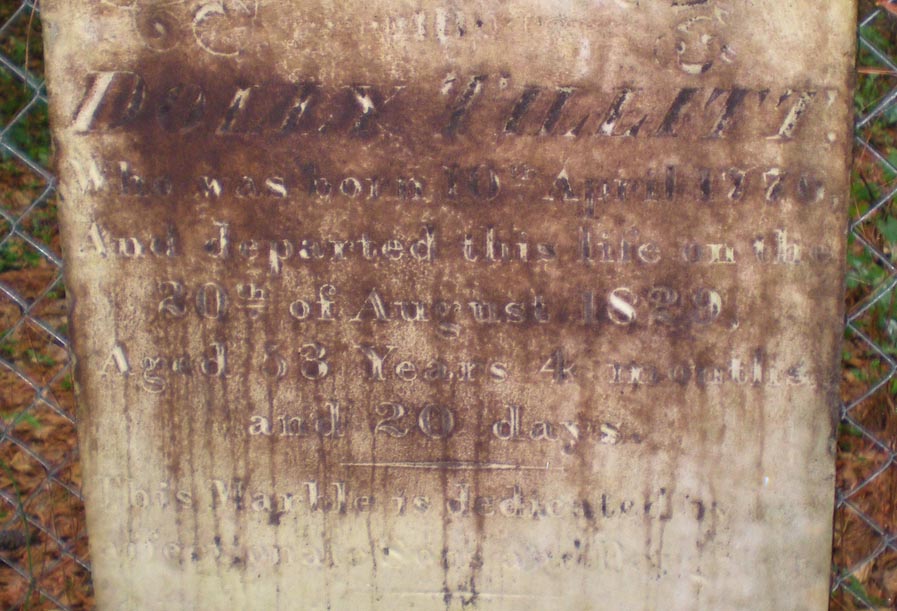 DOLLY TILLITT.
Who was born 10th April 1776,
And departed this life on the
20th of August 1829,
Aged 53 Years 4 months
and 20 days.
This Marble is dedicated by